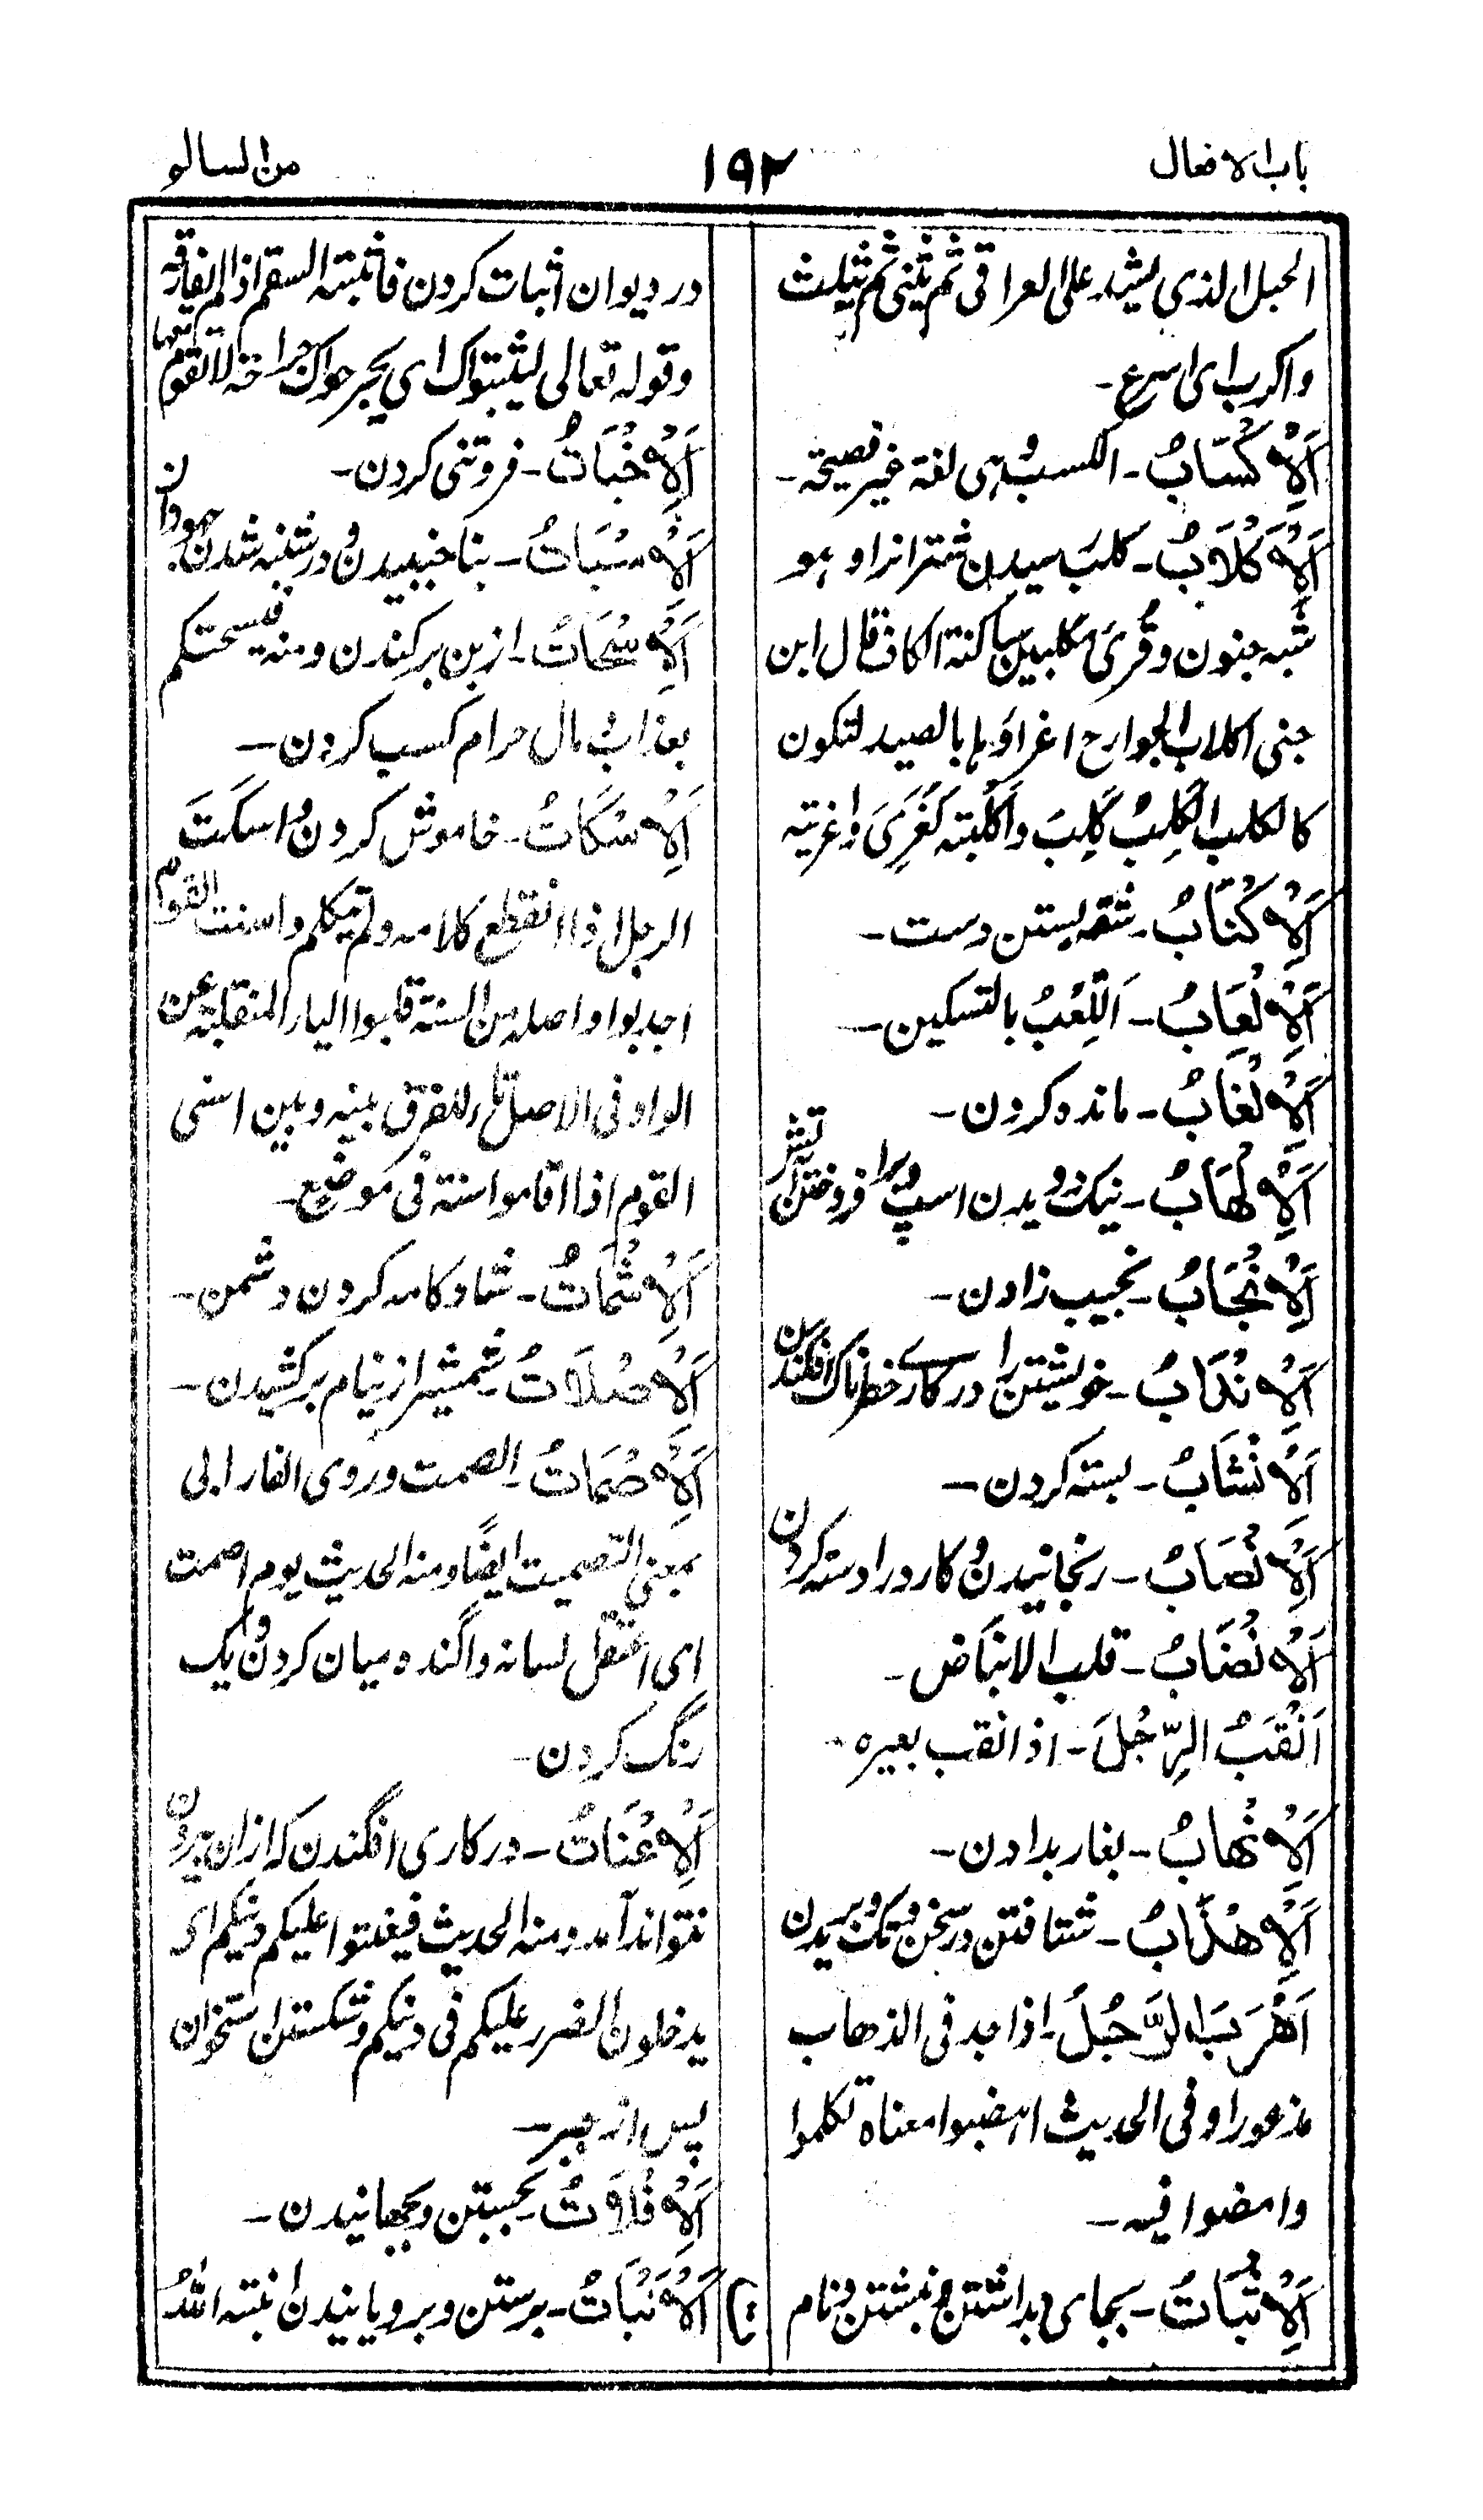 باب الافعال
۱۹۲
من السالم
الحبل الذي يشد على العراقي ثم يثنى ثم يثلث
واكرب اى اسرع۔
اَلْاِكْسَابُ۔ الكسب وهى لغة غير فصيحة۔
اَلْاِكْلَابُ۔ كلب رسيدن شتر انرا وهو
شبه جنون وقُرِئَ مكلبين ساكنة الكاف قال ابن
جنى اكلاب الجوارح اغراؤها بالصيد لتكون
كالكلب الكَلِبُ كَلِبَ واكلبته كغَرِيَ واغريته
اَلْاِكْنَابُ۔ شقه بستن دست۔
اَلْاِلْعَابُ۔ اَللَّعْبُ بالتسكين۔
اَلْاِلْغَابُ۔ مانده كردن۔
اَلْاِلْهَابُ۔ نيك دويدن اسپ وبرافروختن آتش
اَلْاِنْجَابُ۔ نجيب زادن۔
اَلْاِنْدَابُ۔ خويشتن را در كارے خطرناك افكندن
اَلْاِنْشَابُ۔ بسته كردن۔
اَلْاِنْصَابُ۔ رنجانيدن وكارد را دسته كردن
اَلْاِنْضَابُ۔ قلب الانباض۔
اَنْقَبَ الرَّجُلَ۔ اذا نقب بعيره۔
اَلْاِنْهَابُ۔ بغار بدادن۔
اَلْاِهْذَابُ۔ شتافتن در سخن وتك وپريدن
اَهْرَبَ الرَّجُلُ۔ اذا جد فى الذهاب
مذعورا وفى الحديث اهضبوا معناه تكلموا
وامضوا فيه۔
اَلْاِثْبَاتُ۔ بجاى بداشتن ونبشتن ونام
در ديوان اثبات كردن فاثبته السقم اذا لم يفارقه
وقوله تعالى ليثبتوك اي يجرحوك جراحة لا تقوم بها
اَلْاِخْبَاتُ۔ فروتنى كردن۔
اَلْاِسْبَاتُ۔ بناجنبيدن ودر شنبه شدن جهودان
اَلْاِسْحَاتُ۔ از بن بركندن ومنه فيسحتكم
بعذاب مال حرام كسب كردن۔
اَلْاِسْكَاتُ۔ خاموش كردن واسكتَ
الرجل اذا انقطع كلامه ولم يتكلم واسنت القوم
اجدبوا واصله من السنة قلبوا الياء المنقلبة عن
الواو فى الاصل تاء للفرق بينه وبين اسنى
القوم اذا اقاموا سنة فى موضع۔
اَلْاِشْمَاتُ۔ شادكامه كردن دشمن۔
اَلْاِصْلَاتُ۔ شمشير از نيام بركشيدن۔
اَلْاِصْمَاتُ۔ الصمت وروى الفارابى
بمعنى التصميت ايضًا ومنه الحديث يوم اصمت
اى اعتقل لسانه واگنده ميان كردن ويك
رنگ كردن۔
اَلْاِعْنَاتُ۔ در كارى افگندن كه ازان بيرون
نتواند آمد ومنه الحديث فيعنتوا عليكم دينكم اى
يدخلون الضرر عليكم فى دينكم وشكستن استخوان
پس از جبر۔
اَلْاِفْلَاتُ۔ بجستن وبجهانيدن۔
اَلْاِنْبَاتُ۔ برستن وبرويانيدن انبته اللهُ